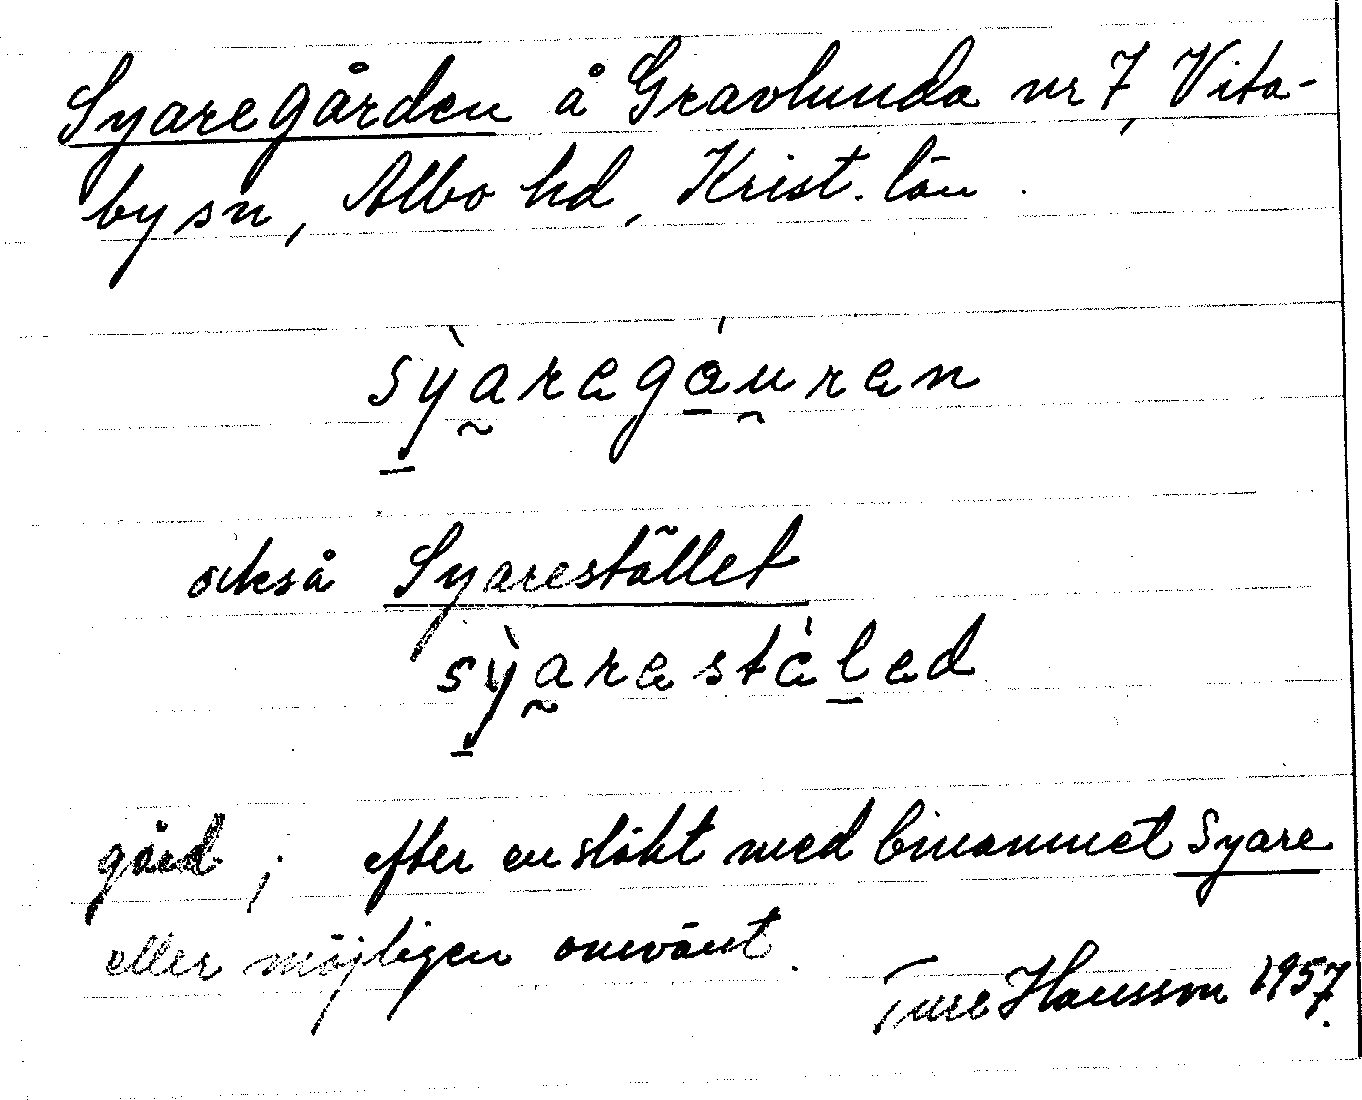 Syaregården å Gravlunda nr 7, Vita-
by sn, Albo hd, Krist. län.
sỳaregáuren
också Syarestället
sỳarestàled
gård; efter en släkt med binamnet Syare
eller möjligen omvänt.
Ture Hansson 1957.